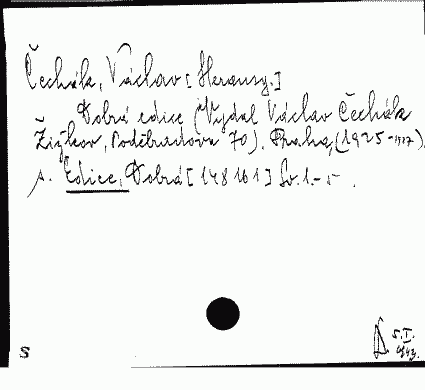 Čechák, Václav [Herausg.]
Dobrá edice (Vydal Václav Čechák
Žižkov, Poděbradova 70). Praha, (1925-1927).
s. Edice, Dobrá [148161] Sv. 1.-5.
5.I.
S